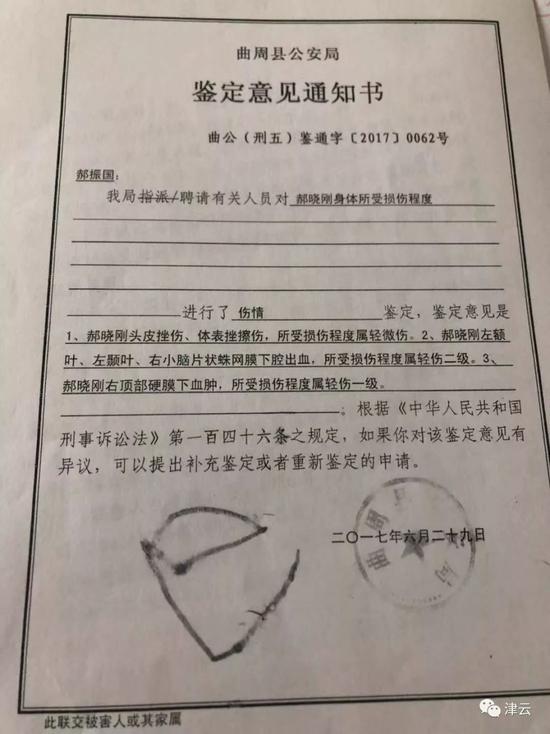 曲周县公安局
鉴定意见通知书
曲公（刑五）鉴通字〔2017〕0062号
郝振国：
我局指派/聘请有关人员对 郝晓刚身体所受损伤程度
进行了 伤情 鉴定，鉴定意见是
1、郝晓刚头皮挫伤、体表挫擦伤，所受损伤程度属轻微伤。2、郝晓刚左额
叶、左颞叶、右小脑片状蛛网膜下腔出血，所受损伤程度属轻伤二级。3、
郝晓刚右顶部硬膜下血肿，所受损伤程度属轻伤一级。
。根据《中华人民共和国
刑事诉讼法》第一百四十六条之规定，如果你对该鉴定意见有
异议，可以提出补充鉴定或者重新鉴定的申请。
二〇一七年六月二十九日
曲周县 局
此联交被害人或其家属
津云